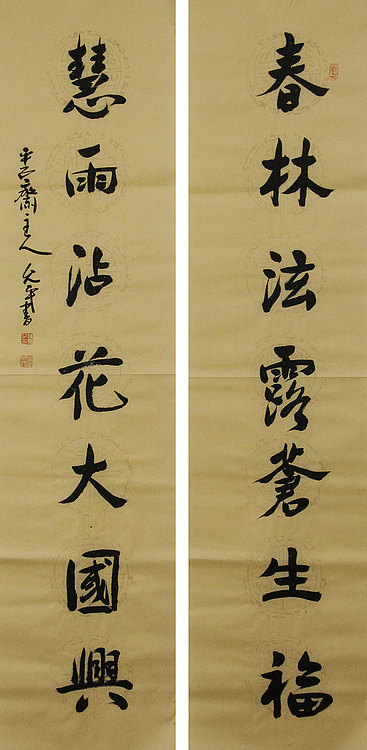 春林泫露蒼生福
慧雨沾花大國興
主人
書